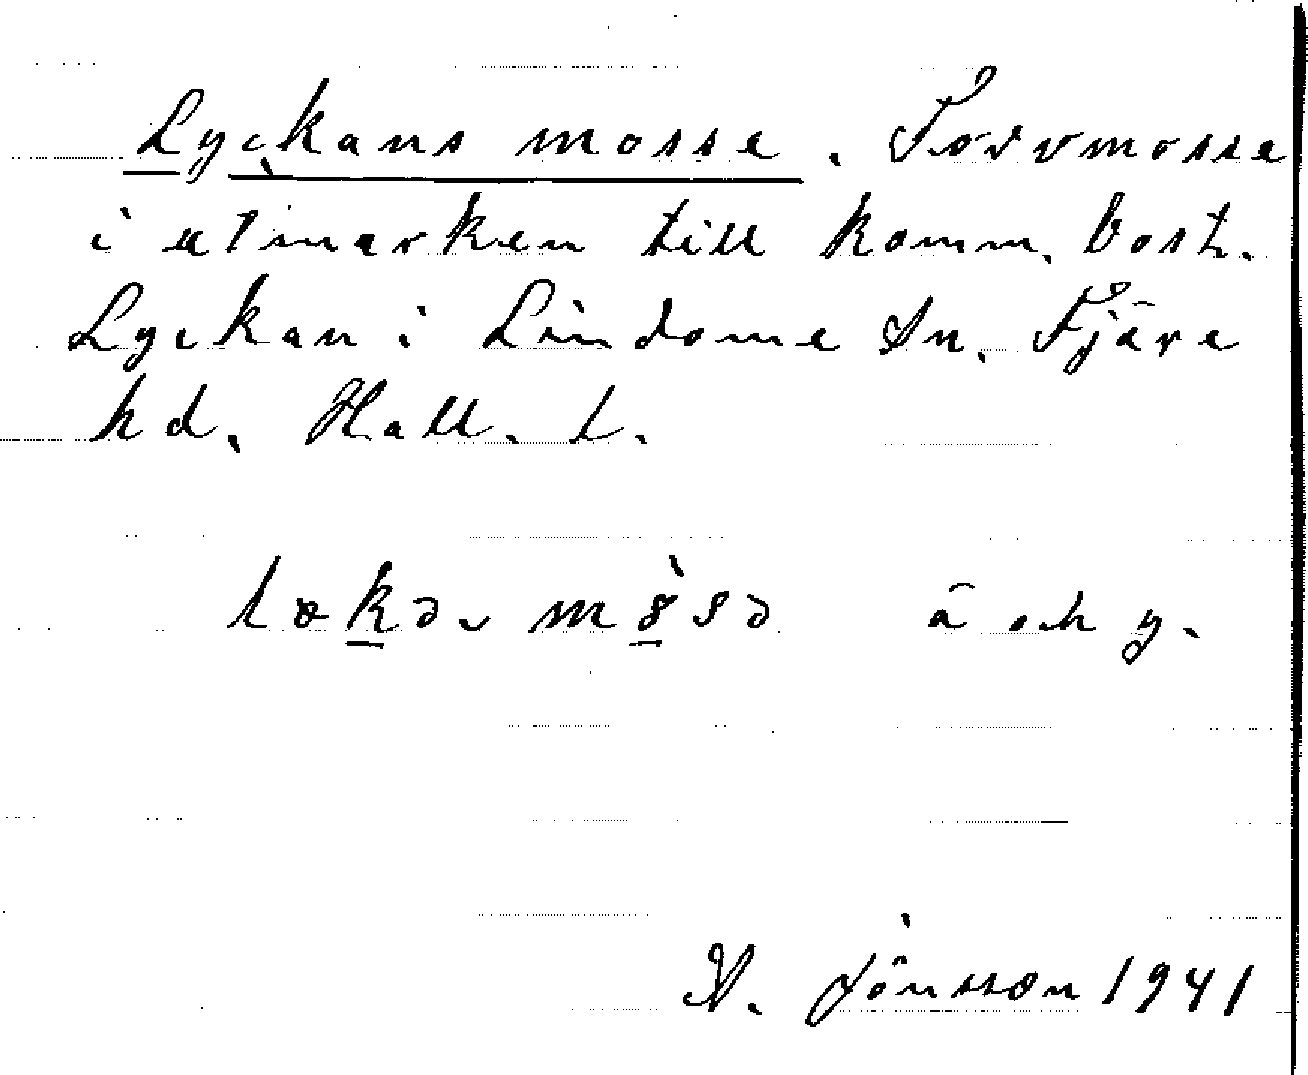 Lyckans mosse. Torvmosse
i utmarken till komm. bost.
Lyckan i Lindome sn. Fjäre
hd. Hall. l.
ä och y.
N. Jönsson 1941